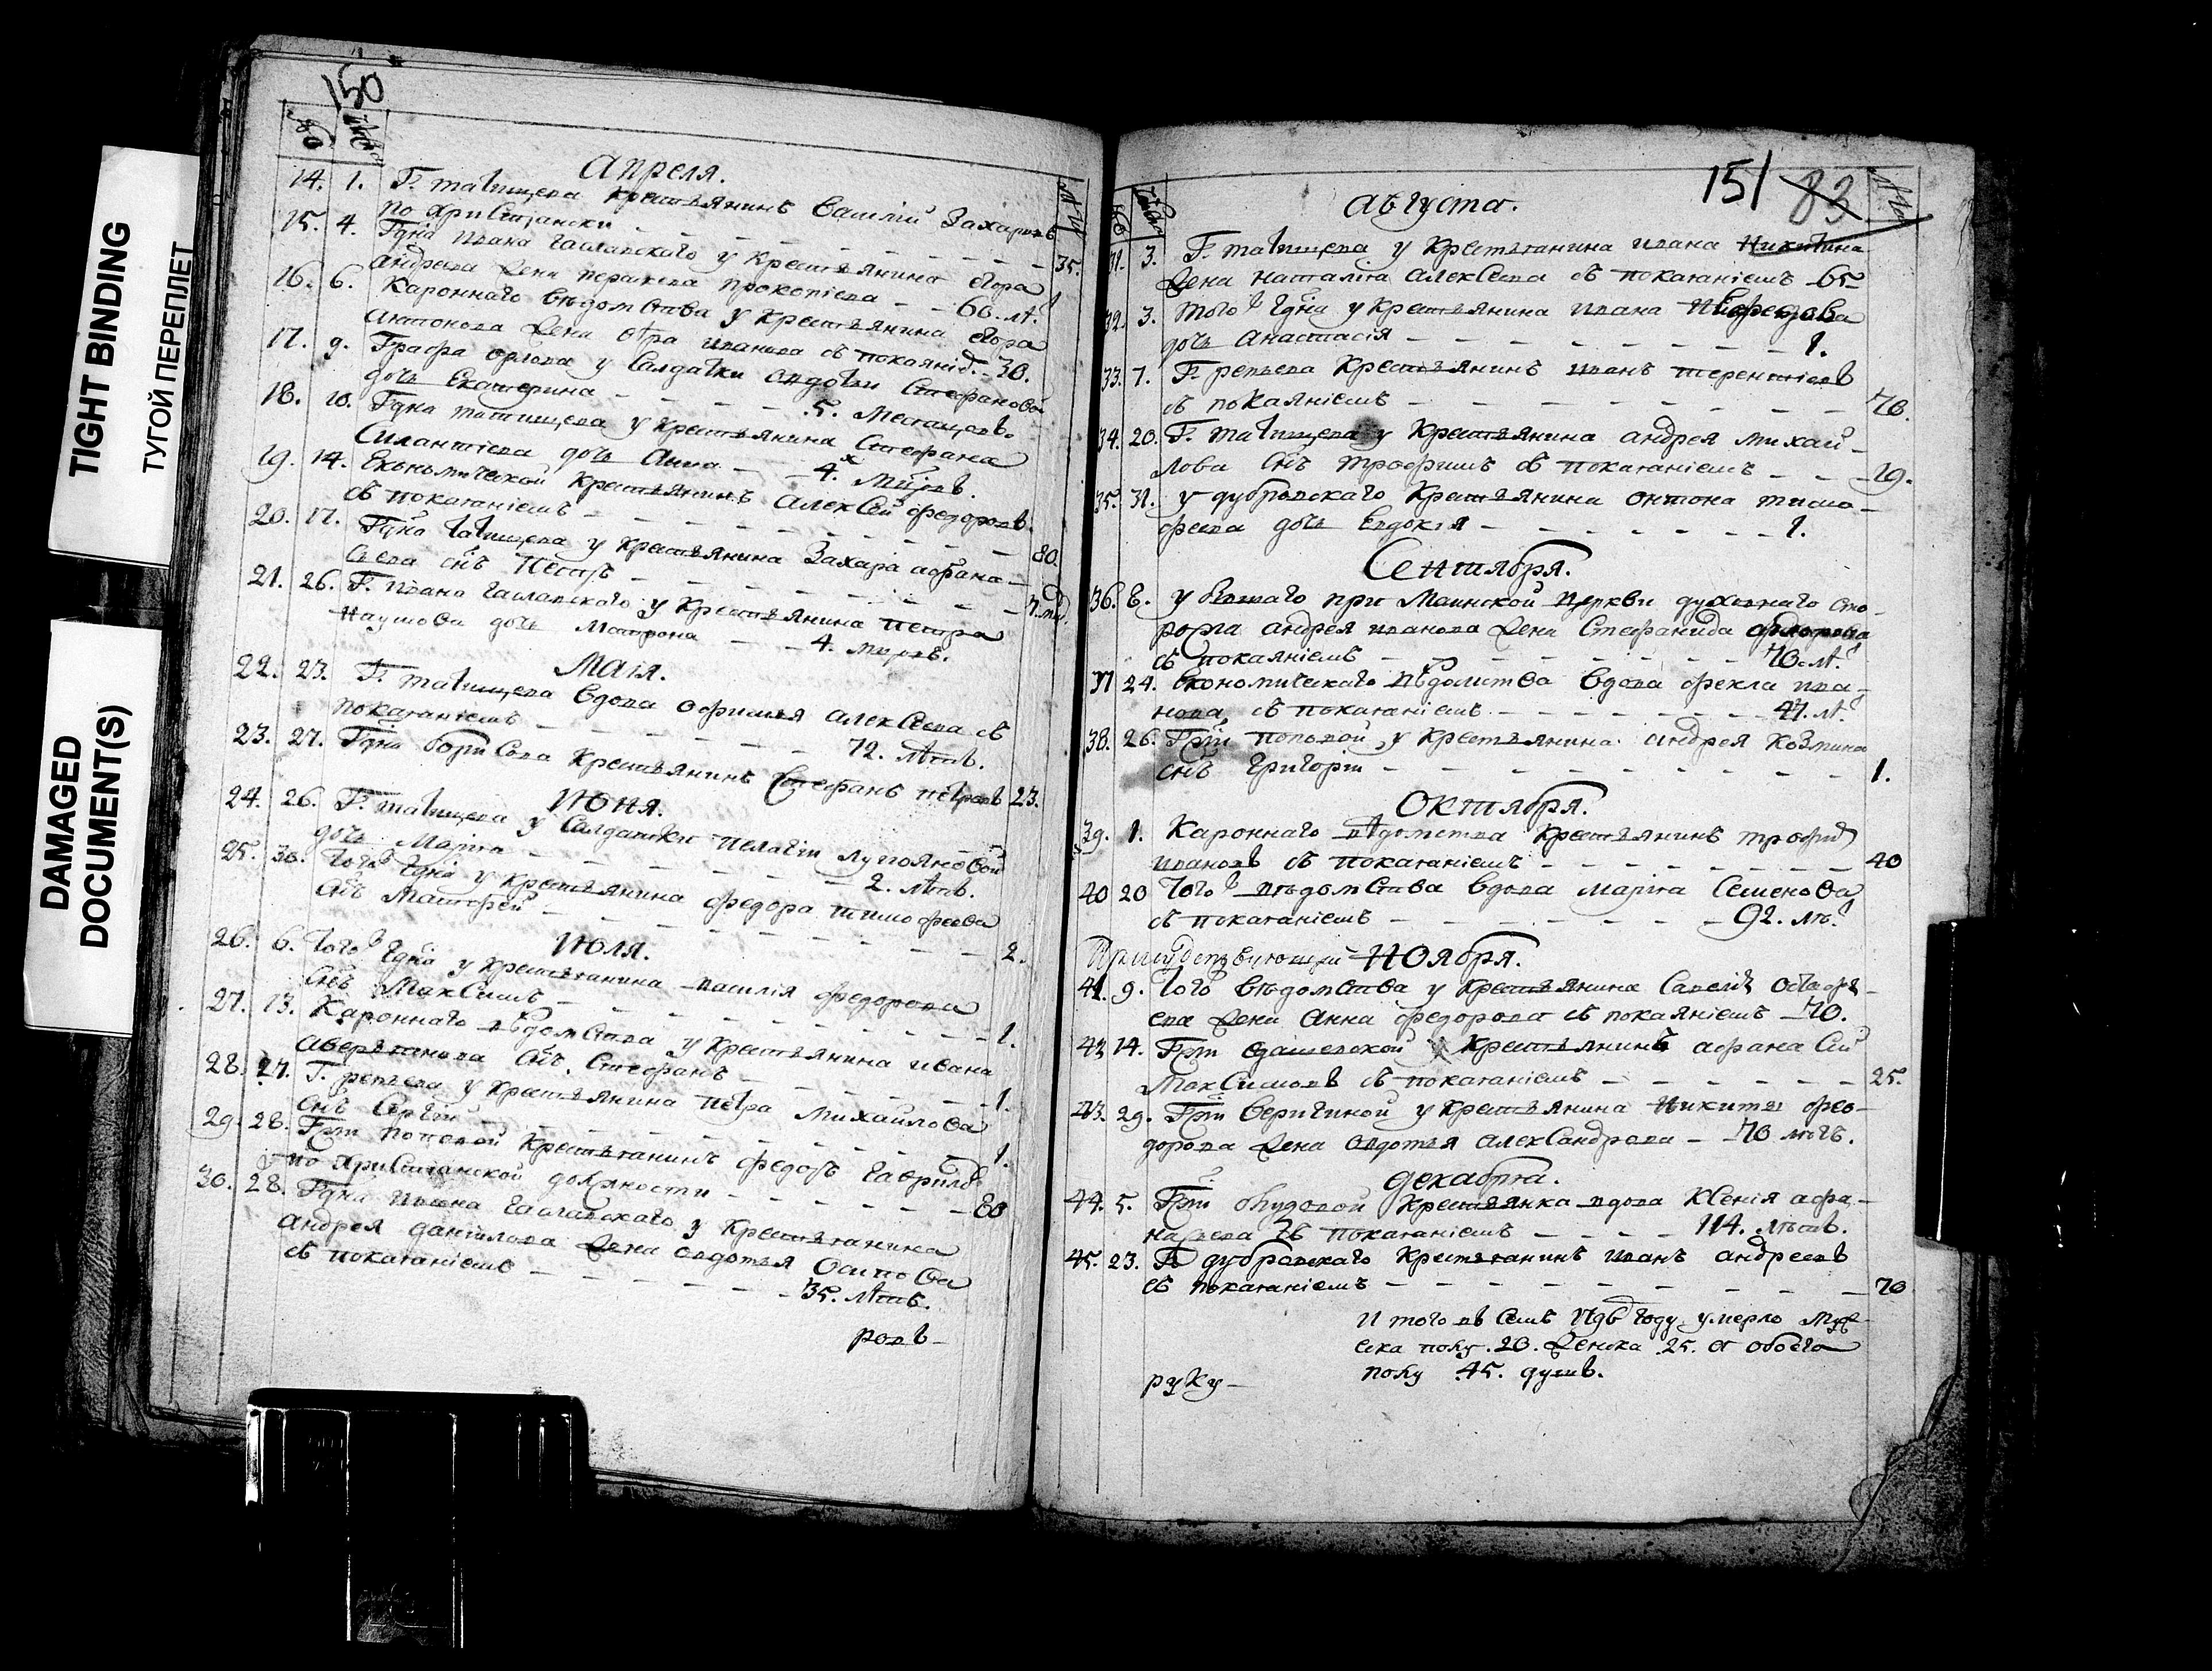 TIGHT BINDING
ТУГОЙ ПЕРЕПЛЕТ
DAMAGED
DOCUMENT(S)
150
Апреля.
14. 1. Г. татищева крестьянинъ Василий Захаровъ
по христiански 35.
15. 4. Гдна ивана Чаславского у крестьянина егора
андреева жена праскева прокопiева 60. лѣ
16. 6. Каронного вѣдомства у крестьянина егора
антонова жена иванова съ покаянiе 30.
17. 9. Графа орлова у салдатки авдотьи стефановой
дочь Екатерина 5. месяцовъ.
18. 10. Гдна татищева у крестьянина Стефана
Силантiева дочь Анна 4х мцовъ.
19. 14. Економической крестьянинъ Алексей федоровъ
съ покаянiемъ 80.
20. 17. Гдна татищева у крестьянина Захара афана-
сьева снъ Петръ
21. 26. Г. ивана Чаславского у крестьянина петра
Наумова дочь Матрона 4. мцовъ.
Маiя.
22. 23. Г. татищева вдова офимья алексеева съ
покаянiемъ 72. лѣтъ.
23. 27. Гдна борисова крестьянинъ Стефанъ петровъ 23.
Июня.
24. 26. Г. татищева у салдатки пелагiи лукьяновой
дочь Марiя 2. лѣтъ.
25. 30. Тогож гдна у крестьянина федора тимофеева
снъ Матфей 2.
Июля.
26. 6. Тогож гдна у крестьянина василiя федорова
снъ Максимъ 1.
27. 13. Каронного вѣдомства у крестьянина ивана
аверьянова снъ Стефанъ 1.
28. 27. Г. репьева у крестьянина петра Михайлова
снъ Сергiй 1.
29. 28. Гжи поповой крестьянинъ федоръ гаврило
по христiанской должности 80
30. 28. Гдна ивана Чаславского у крестьянина
андрея данилова жена авдотья Осипова
съ покаянiемъ 35. лѣтъ.
ровъ
151 83
августа.
31. 3. Г. татищева у крестьянина ивана Никитина
жена наталiя алексеева съ покаянiемъ 65
32. 3. тогож гдна у крестьянина ивана
дочь Анастасiя 1.
33. 7. Г. репьева крестьянинъ иванъ терентiевъ
съ покаянiемъ 70.
34. 20. Г. татищева у крестьянина андрея михай-
лова снъ трофимъ съ покаянiемъ 19.
35. 31. у дубровского крестьянина онтона тимо-
феева дочь Евдокiя 1.
Сентября.
36. 6. у бывшаго при Маинской церкви духовнаго сто-
рожа андрея иванова жена Стефанида
съ покаянiемъ 70. лѣ
37 24. економического вѣдомства вдова фекла ива-
нова съ покаянiемъ 47. лѣ
38. 26. Гжи поповой у крестьянина андрея козмина
снъ григорiй 1.
Октября.
39. 1. Каронного вѣдомства крестьянинъ трофим
ивановъ съ покаянiемъ 40
40 20 Тогож вѣдомства вдова марiя Семенова
съ покаянiемъ 92. лѣ
Ноября.
41. 9. Того вѣдомства у крестьянина Савелiя
ева жена Анна федорова съ покаянiемъ 70.
42 14. Гжи крестьянинъ афанасий
Максимовъ съ покаянiемъ 25.
43. 29. Гжи Веригиной у крестьянина Никиты фео-
дорова жена авдотья александрова 70 лѣтъ.
декабря.
44. 5. Гжи крестьянка вдова Ксенiя афа-
насьева съ покаянiемъ 114. лѣтъ.
45. 23. Г. дубровского крестьянинъ иванъ андреевъ
съ покаянiемъ 70
И того въ семъ году умерло муже-
ска полу 20. женска 25. а обоего
полу 45. душъ.
руку